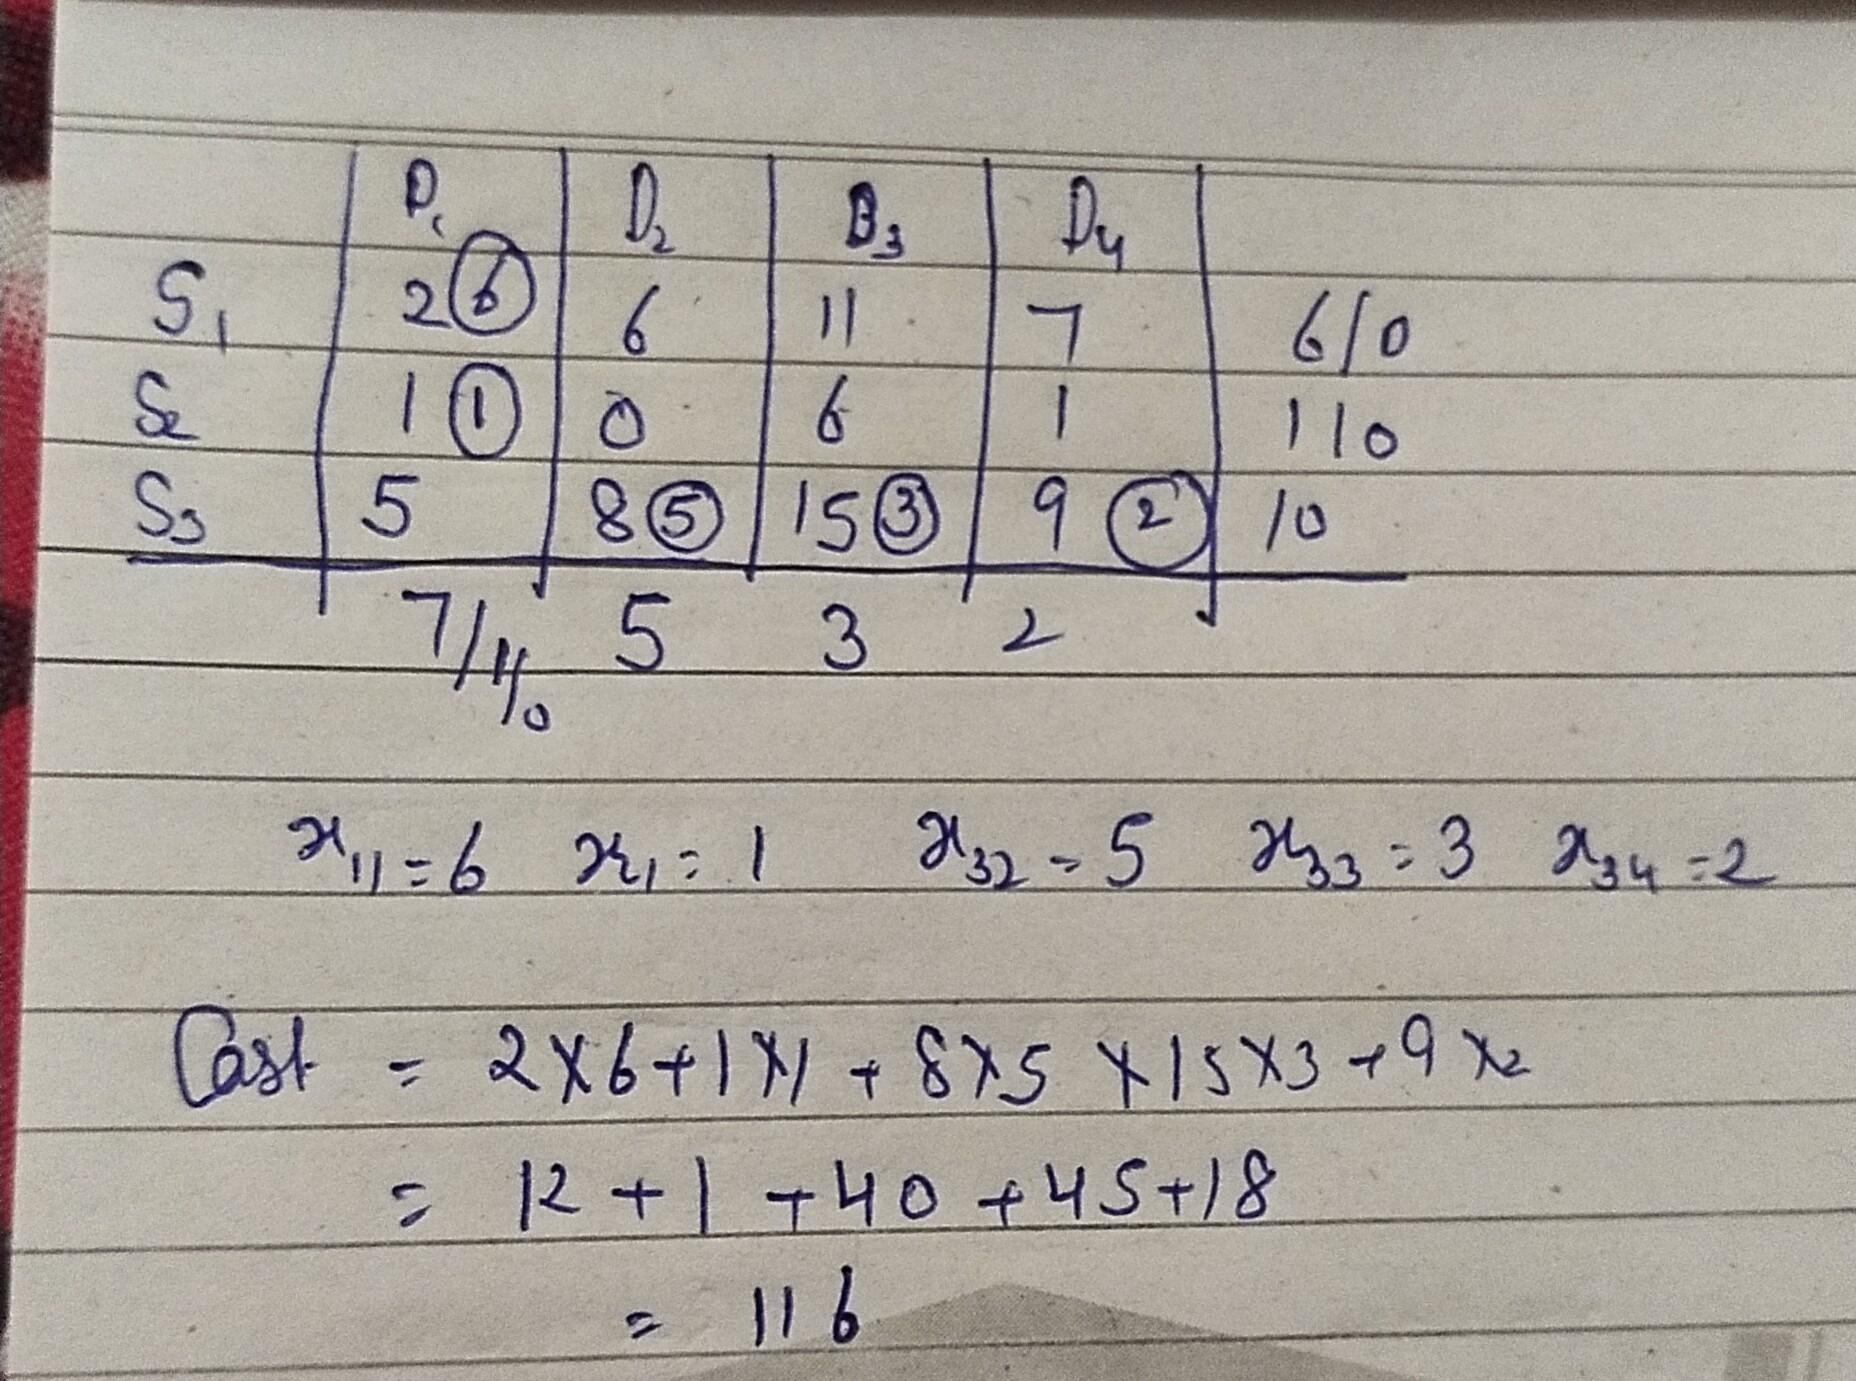 D₁ D₂ B₃ D₄
S₁ 2 ⑥ 6 11 7 6/0
S₂ 1 ① 0 6 1 1/0
S₃ 5 8 ⑤ 15 ③ 9 ② 10
7/1/0 5 3 2
x₁₁ = 6 x₂₁ = 1 x₃₂ = 5 x₃₃ = 3 x₃₄ = 2
Cost = 2×6+1×1 + 8×5 × 15×3 + 9×2
= 12 + 1 + 40 + 45 + 18
= 116